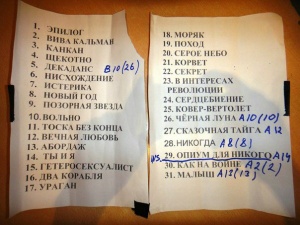 1. ЭПИЛОГ
2. ВИВА КАЛЬМАН
3. КАНКАН
4. ЩЕКОТНО
5. ДЕКАДАНС В10(26)
6. НИСХОЖДЕНИЕ
7. ИСТЕРИКА
8. НОВЫЙ ГОД
9. ПОЗОРНАЯ ЗВЕЗДА
10. ВОЛЬНО
11. ТОСКА БЕЗ КОНЦА
12. ВЕЧНАЯ ЛЮБОВЬ
13. АБОРДАЖ
14. ТЫ И Я
15. ГЕТЕРОСЕКСУАЛИСТ
16. ДВА КОРАБЛЯ
17. УРАГАН
18. МОРЯК
19. ПОХОД
20. СЕРОЕ НЕБО
21. КОРВЕТ
22. СЕКРЕТ
23. В ИНТЕРЕСАХ
РЕВОЛЮЦИИ
24. СЕРДЦЕБИЕНИЕ
25. КОВЕР-ВЕРТОЛЕТ
26. ЧЁРНАЯ ЛУНА А10(10)
27. СКАЗОЧНАЯ ТАЙГА А12
28. НИКОГДА А8(8)
29. ОПИУМ ДЛЯ НИКОГО А14
30. КАК НА ВОЙНЕ А2(2)
31. МАЛЫШ А13(13)